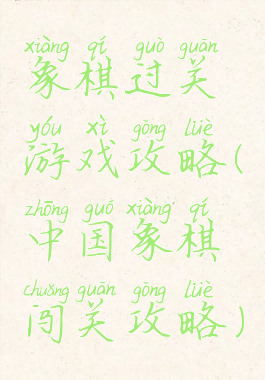 xiàng qí guò guān
象棋过关
yóu xì gōng lüè
游戏攻略(
zhōng guó xiàng qí
中国象棋
chuǎng guān gōng lüè
闯关攻略)